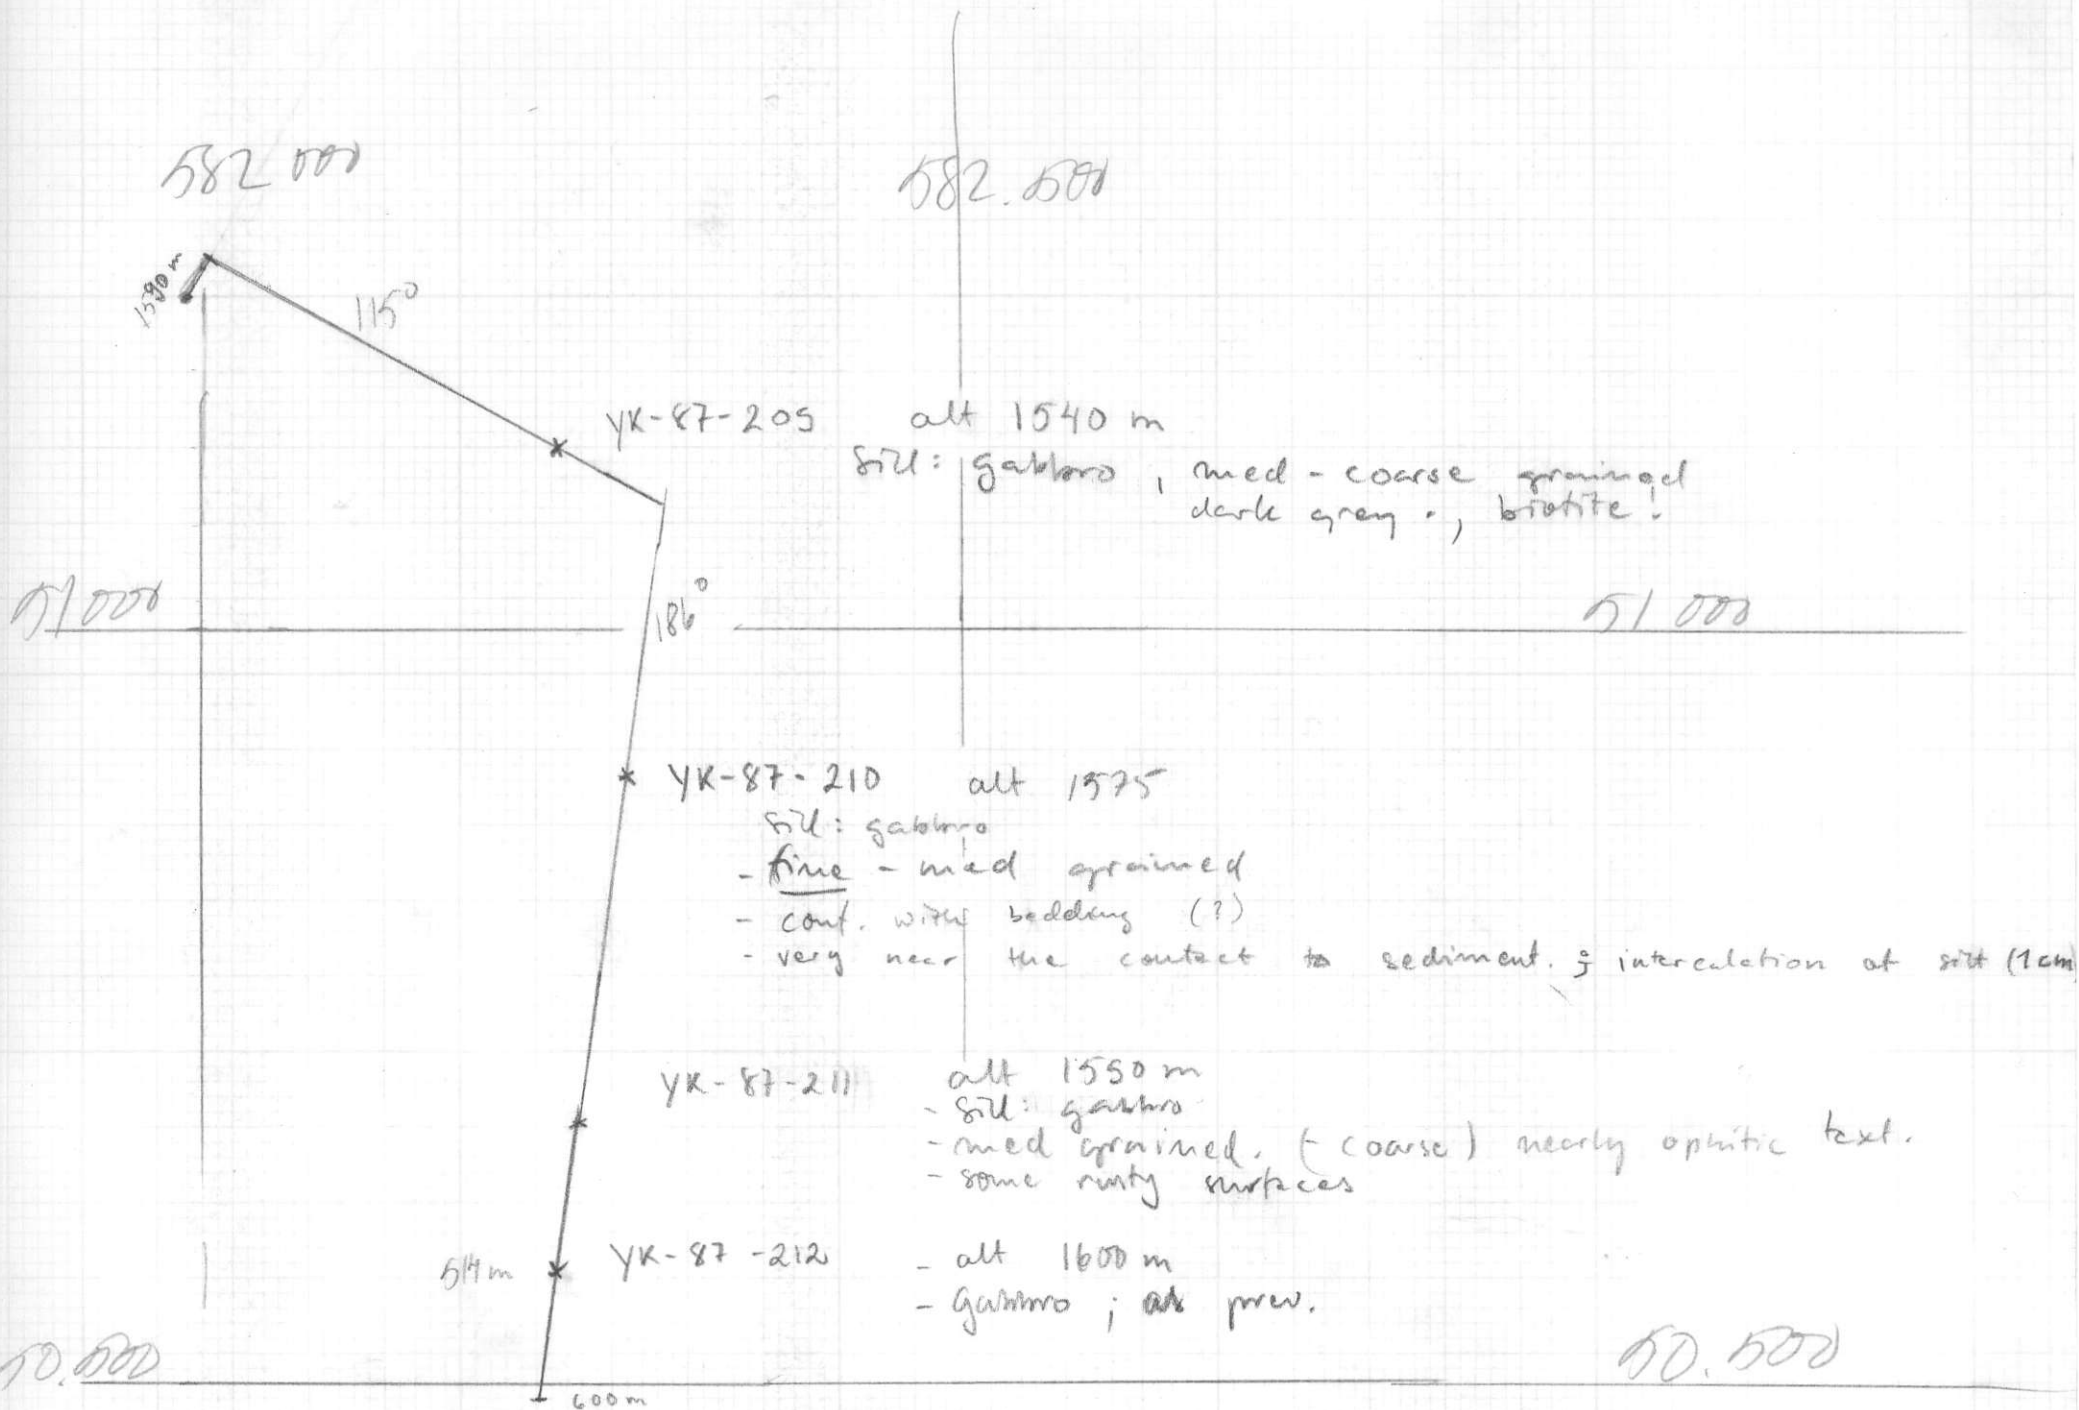 582 000
582.500
1590 m
115°
YK-87-209 alt 1540 m
Sill: gabbro, med - coarse grained
dark grey ., biotite!
51 000
186°
51 000
YK-87-210 alt 1575
Sill: gabbro
- fine - med grained
- conf. with bedding (?)
- very near the contact to sediment. ; intercalation of silt (1 cm
YK-87-211 alt 1590 m
- Sill: gabbro
- med grained. (- coarse) nearly ophitic text.
- some rusty surfaces
514 m
YK-87-212 - alt 1600 m
- Gabbro ; as prev.
50.500
50.500
600 m